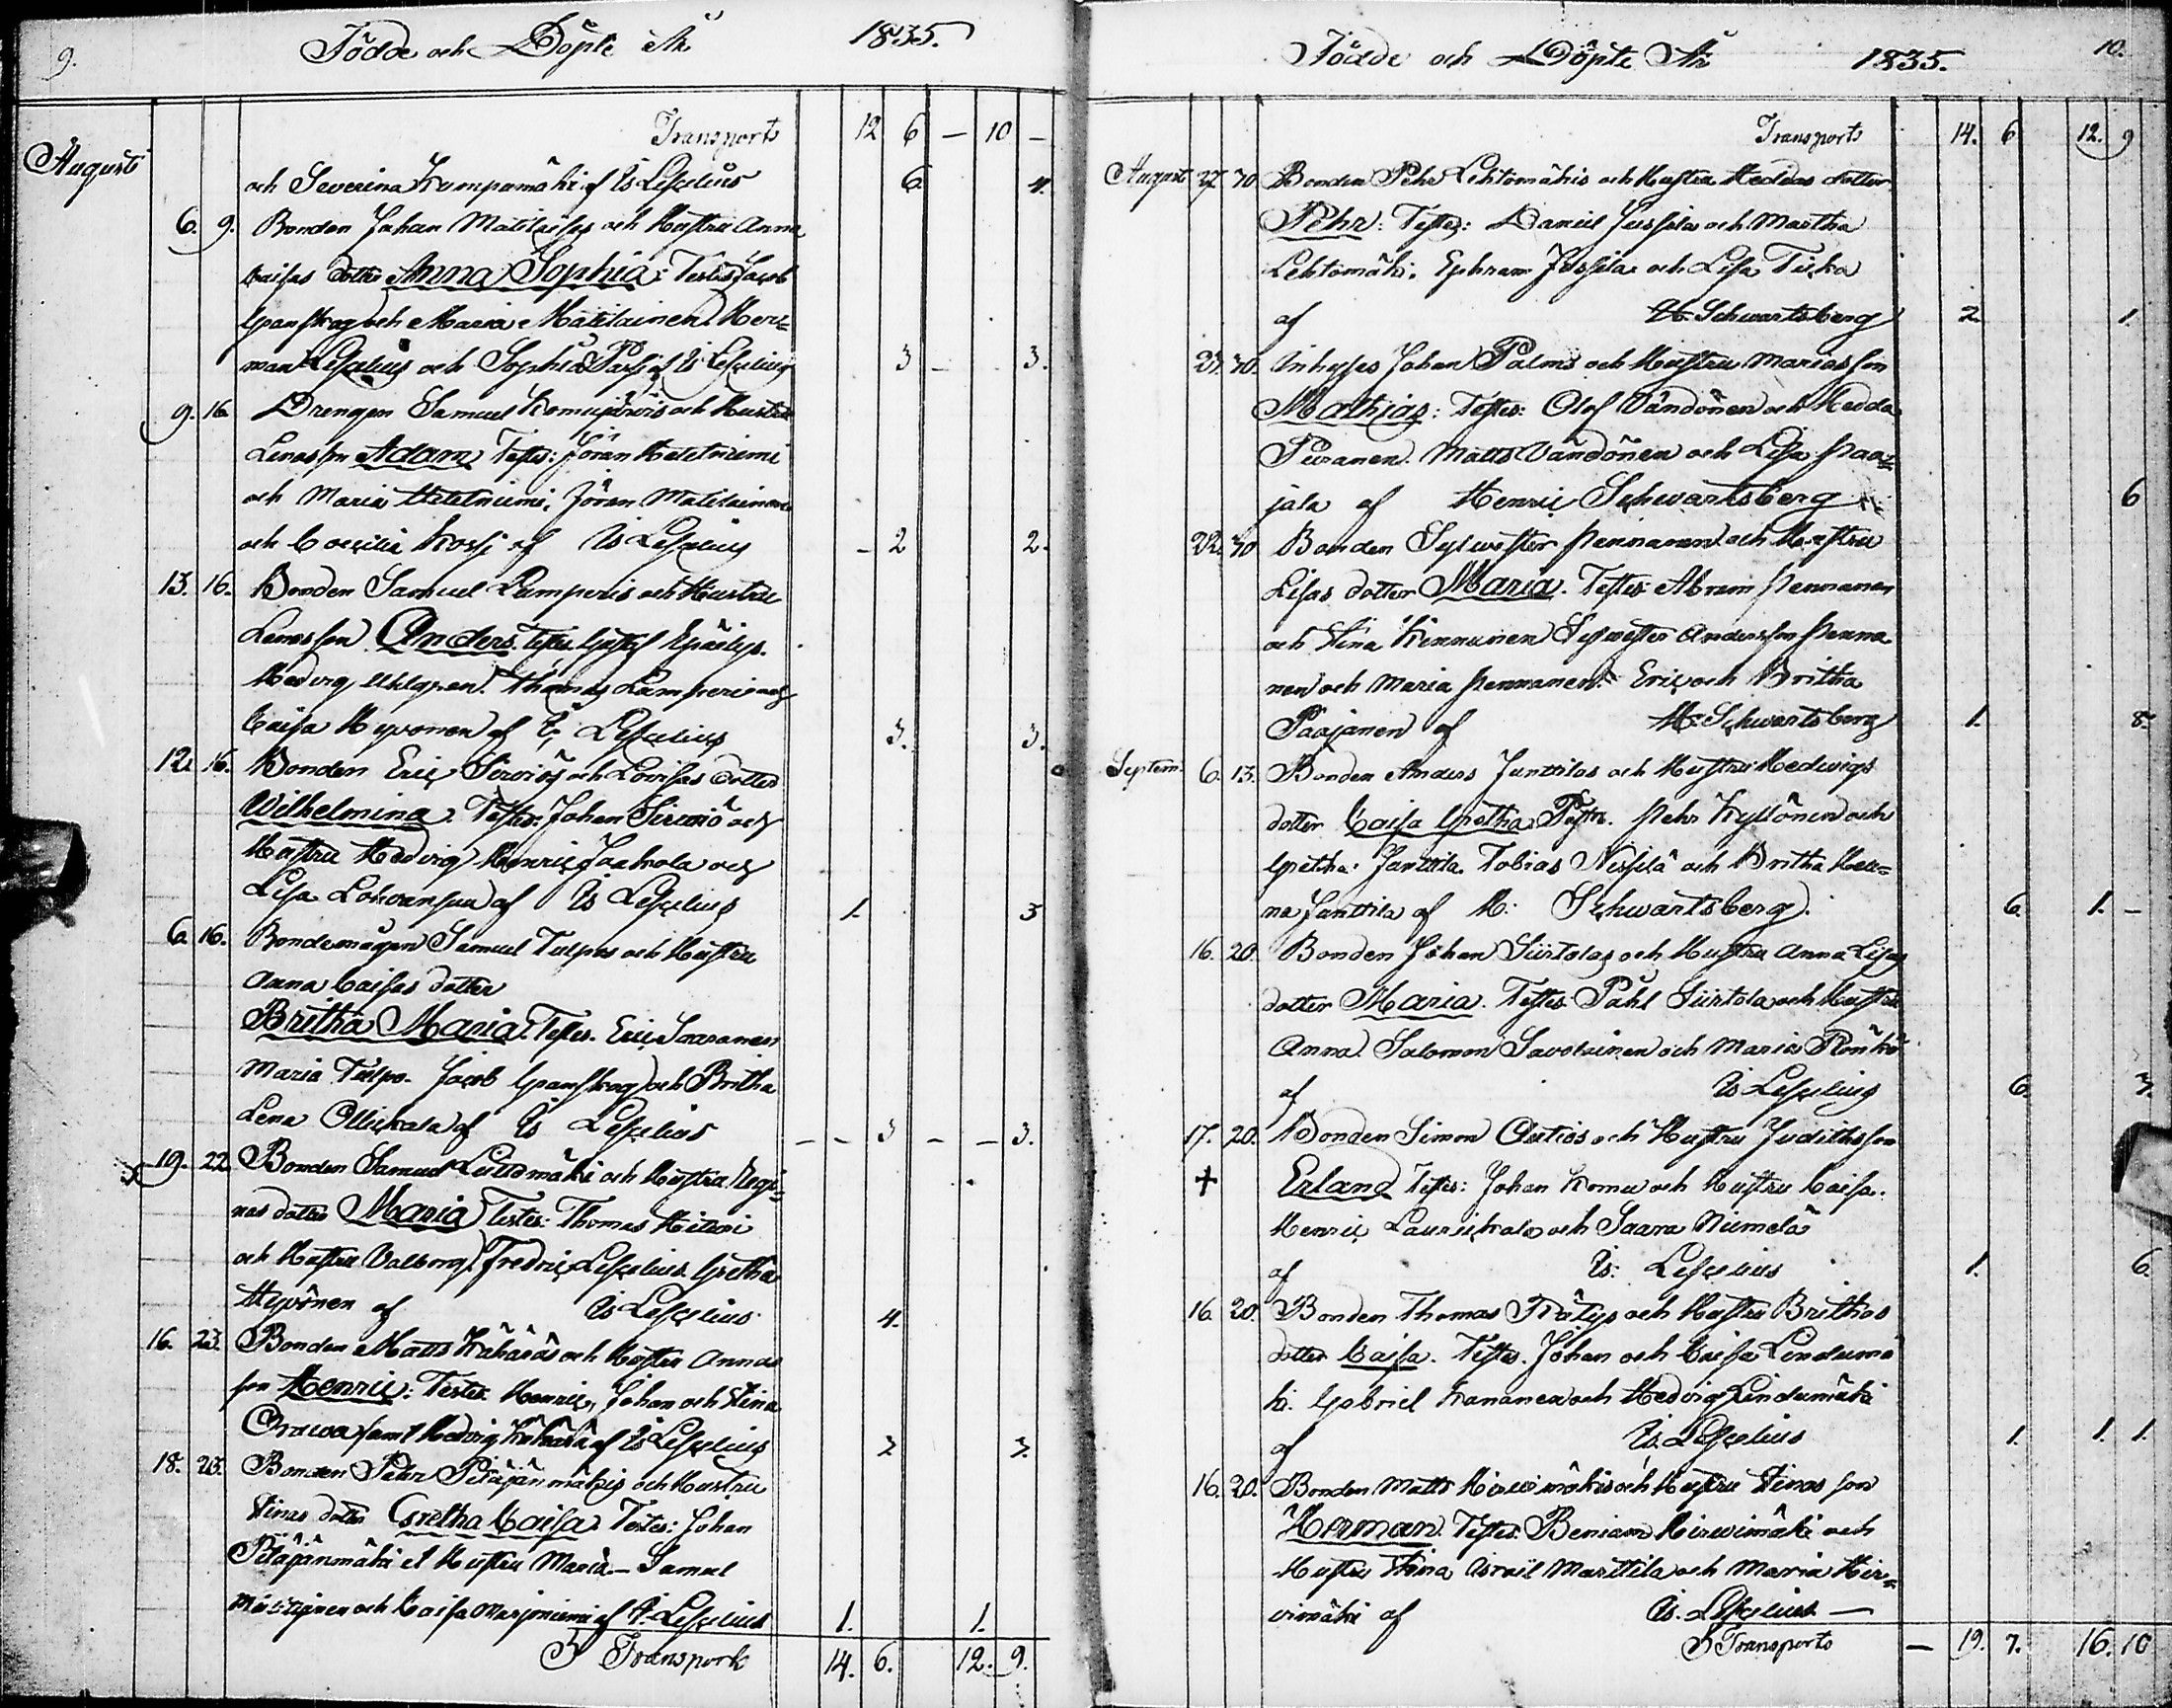 9.
Födde och Döpte År 1835.
Transport 12 6 — 10 —
Augusti
och Severina Kumpumäki af Is Lescelius 6. 4.
6. 9. Bonden Johan Matilaises och Hustru Anna
Caisas dotter Anna Sophia: Testes Jacob
Granskog och Maria Matilainen. Her=
man Lescelius och Sophia af Is Lescelius 3 - 3.
9. 16. Drengen Samuel Komujärvis och Hustru
Lenas son Adam. Testes: Jöran Hetetniemi
och Maria Hetetniemi, Jöran Matilainen
och Cæcilia Koski af Is Lescelius - 2 2.
13. 16. Bonden Samuel Lamperis och Hustru
Lenas son Anders. Testes Gustaf
Hedvig Uhlgren. Thomas Lamperi och
Caisa Hyvönen af Is Lescelius 3. 3.
12. 16. Bonden Eric Sirviös och Lovisas dotter
Wilhelmina. Testes: Johan Sirviö och
Hustru Hedvig Henric Jaakola och
Lisa Lohvansuu af Is Lescelius 1. 3
6. 16. Bondemågen Samuel Tulpos och Hustru
Anna Caisas dotter
Britha Maria. Testes. Eric Saaranen
Maria Tulpo. Jacob Granskog och Britha
Lena Ollickala af Is Lescelius - - 3 - - 3.
19. 22. Bonden Samuel och Hustru Regi=
nas dotter Maria. Testes: Thomas Hitari
och Hustru Valborg. Fredric Lescelius Gretha
Hyvönen af Is Lescelius 4.
16. 23. Bonden Matts Kähäräs och Hustru Annas
son Henric: Testes Henric, Johan och Stina
Orava samt Hedvig Kähärä af Is Lescelius 2 2.
18. 23. Bonden Pehr Petäjänmäkis och Hustru
Stinas dotter Gretha Caisa. Testes: Johan
Petäjänmäki et Hustru Maria - Samuel
och Caisa Marjoniemi af Is Lescelius 1. 1.
Transport 14. 6. 12. 9.
10.
Födde och Döpte År 1835.
Transport 14. 6 12. 9
August 27. 30. Bonden Pehr Lehtomäkis och Hustru Heddas dotter
Pehr: Testes: Daniel Jussila och Martha
Lehtomäki, Ephram Jussila och Lisa Tiska
af H: Schwartsberg 2 1.
23. 30. Inhyses Johan Palms och Hustru Marias son
Mathias: Testes: Olof Vändönen och Hedda
Puranen. Matts Vändönen och Lisa Haa=
jala af Henric Schwartsberg 6
22. 30 Bonden Sylwester Pennanen och Hustru
Lisas dotter Maria. Testes: Abram Pennanen
och Stina Kinnunen Sylwester Andersson Penna
nen och Maria Pennanen. Eric och Britha
Paajanen af H: Schwartsberg 1. 8.
Septem. 6. 13. Bonden Anders Junttilas och Hustru Hedwigs
dotter Caisa Gretha. Testes. Pehr Kyllönen och
Gretha Junttila. Tobias Nissilä och Britha Hen=
na Junttila af H: Schwartsberg. 6. 1. -
16. 20. Bonden Johan Siirtolas och Hustru Anna Lisas
dotter Maria. Testes: Påhl Siirtola och Hustru
Anna. Salomon Savolainen och Maria Rönkö
af Is Lescelius 6. 3.
17. 20. Bonden Simon Autios och Hustru Judiths son
+ Erland Testes: Johan Komu och Hustru Caisa.
Henric Laurickala och Saara Niemelä
af Is: Lescelius 1. 6.
16. 20. Bonden Thomas Krätys och Hustru Brithas
dotter Caisa. Testes. Johan och Caisa Lindumä
ki. Gabriel Kananen och Hedvig Lindumäki
af Is. Lescelius 1. 1. 1.
16. 20. Bonden Matts Hirvimäkis och Hustru Stinas son
Herman. Testes: Beniam Hirvimäki och
Hustru Stina Israil Marttila och Maria Hir=
vimäki af Is. Lescelius —
Transport — 19. 7. 16. 10